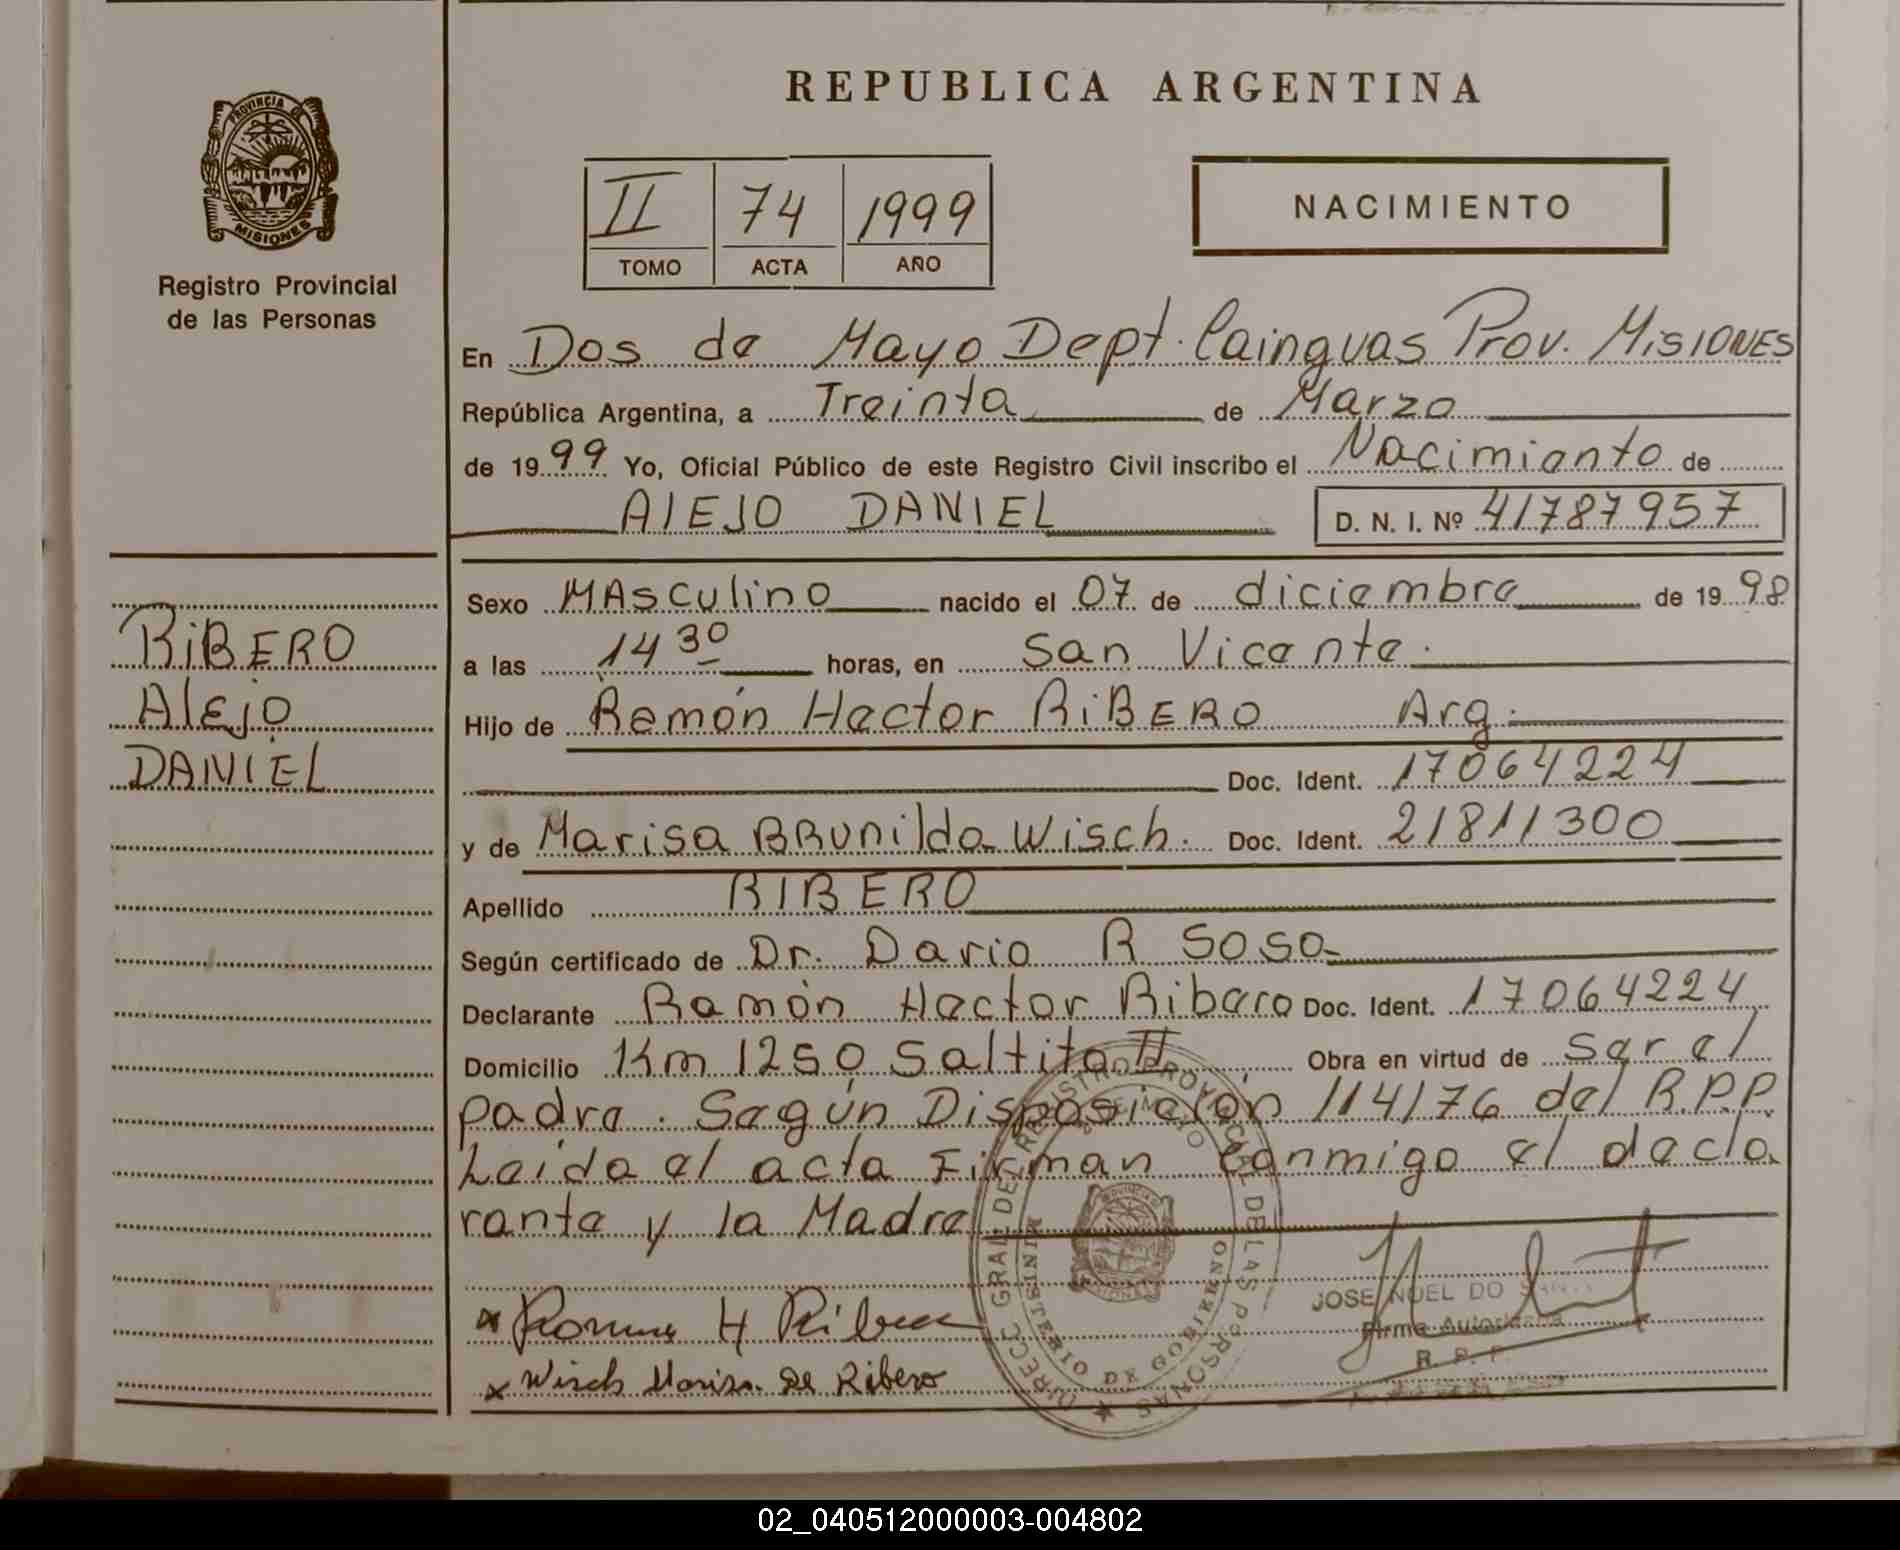 REPUBLICA ARGENTINA
PROVINCIA D
MISIONES
Registro Provincial
de las Personas
II 74 1999
TOMO ACTA AÑO
NACIMIENTO
En Dos de Mayo Dept. Cainguas Prov. MISIONES
República Argentina, a Treinta de Marzo
de 19 99 Yo, Oficial Público de este Registro Civil inscribo el Nacimiento de
AlEJO DANIEL D. N. I. Nº 41787957
Sexo MAsculino nacido el 07 de diciembre de 19 98
a las 14 30 horas, en San Vicente.
Hijo de Ramón Hector RiBERO Arg.
Doc. Ident. 17064224
y de Marisa BRunilda Wisch. Doc. Ident. 21811300
Apellido RIBERO
Según certificado de Dr. Dario R Sosa
Declarante Ramón Hector Ribero Doc. Ident. 17064224
Domicilio Km 1250 Saltito II Obra en virtud de ser el
padre. Según Disposición 114/76 del R.P.P.
Leida el acta Firman Conmigo el decla
rante y la Madre
RiBERO
Alejo
DANIEL
DIRECC GRAL DE REGISTRO PROVINCIAL DE LAS PERSONAS
MINISTERIO DE GOBIERNO
x Ramon H Ribero
x Wisch Marisa De Ribero
JOSE NOEL DO
Firma Autorizada
R. P. P.
02_040512000003-004802